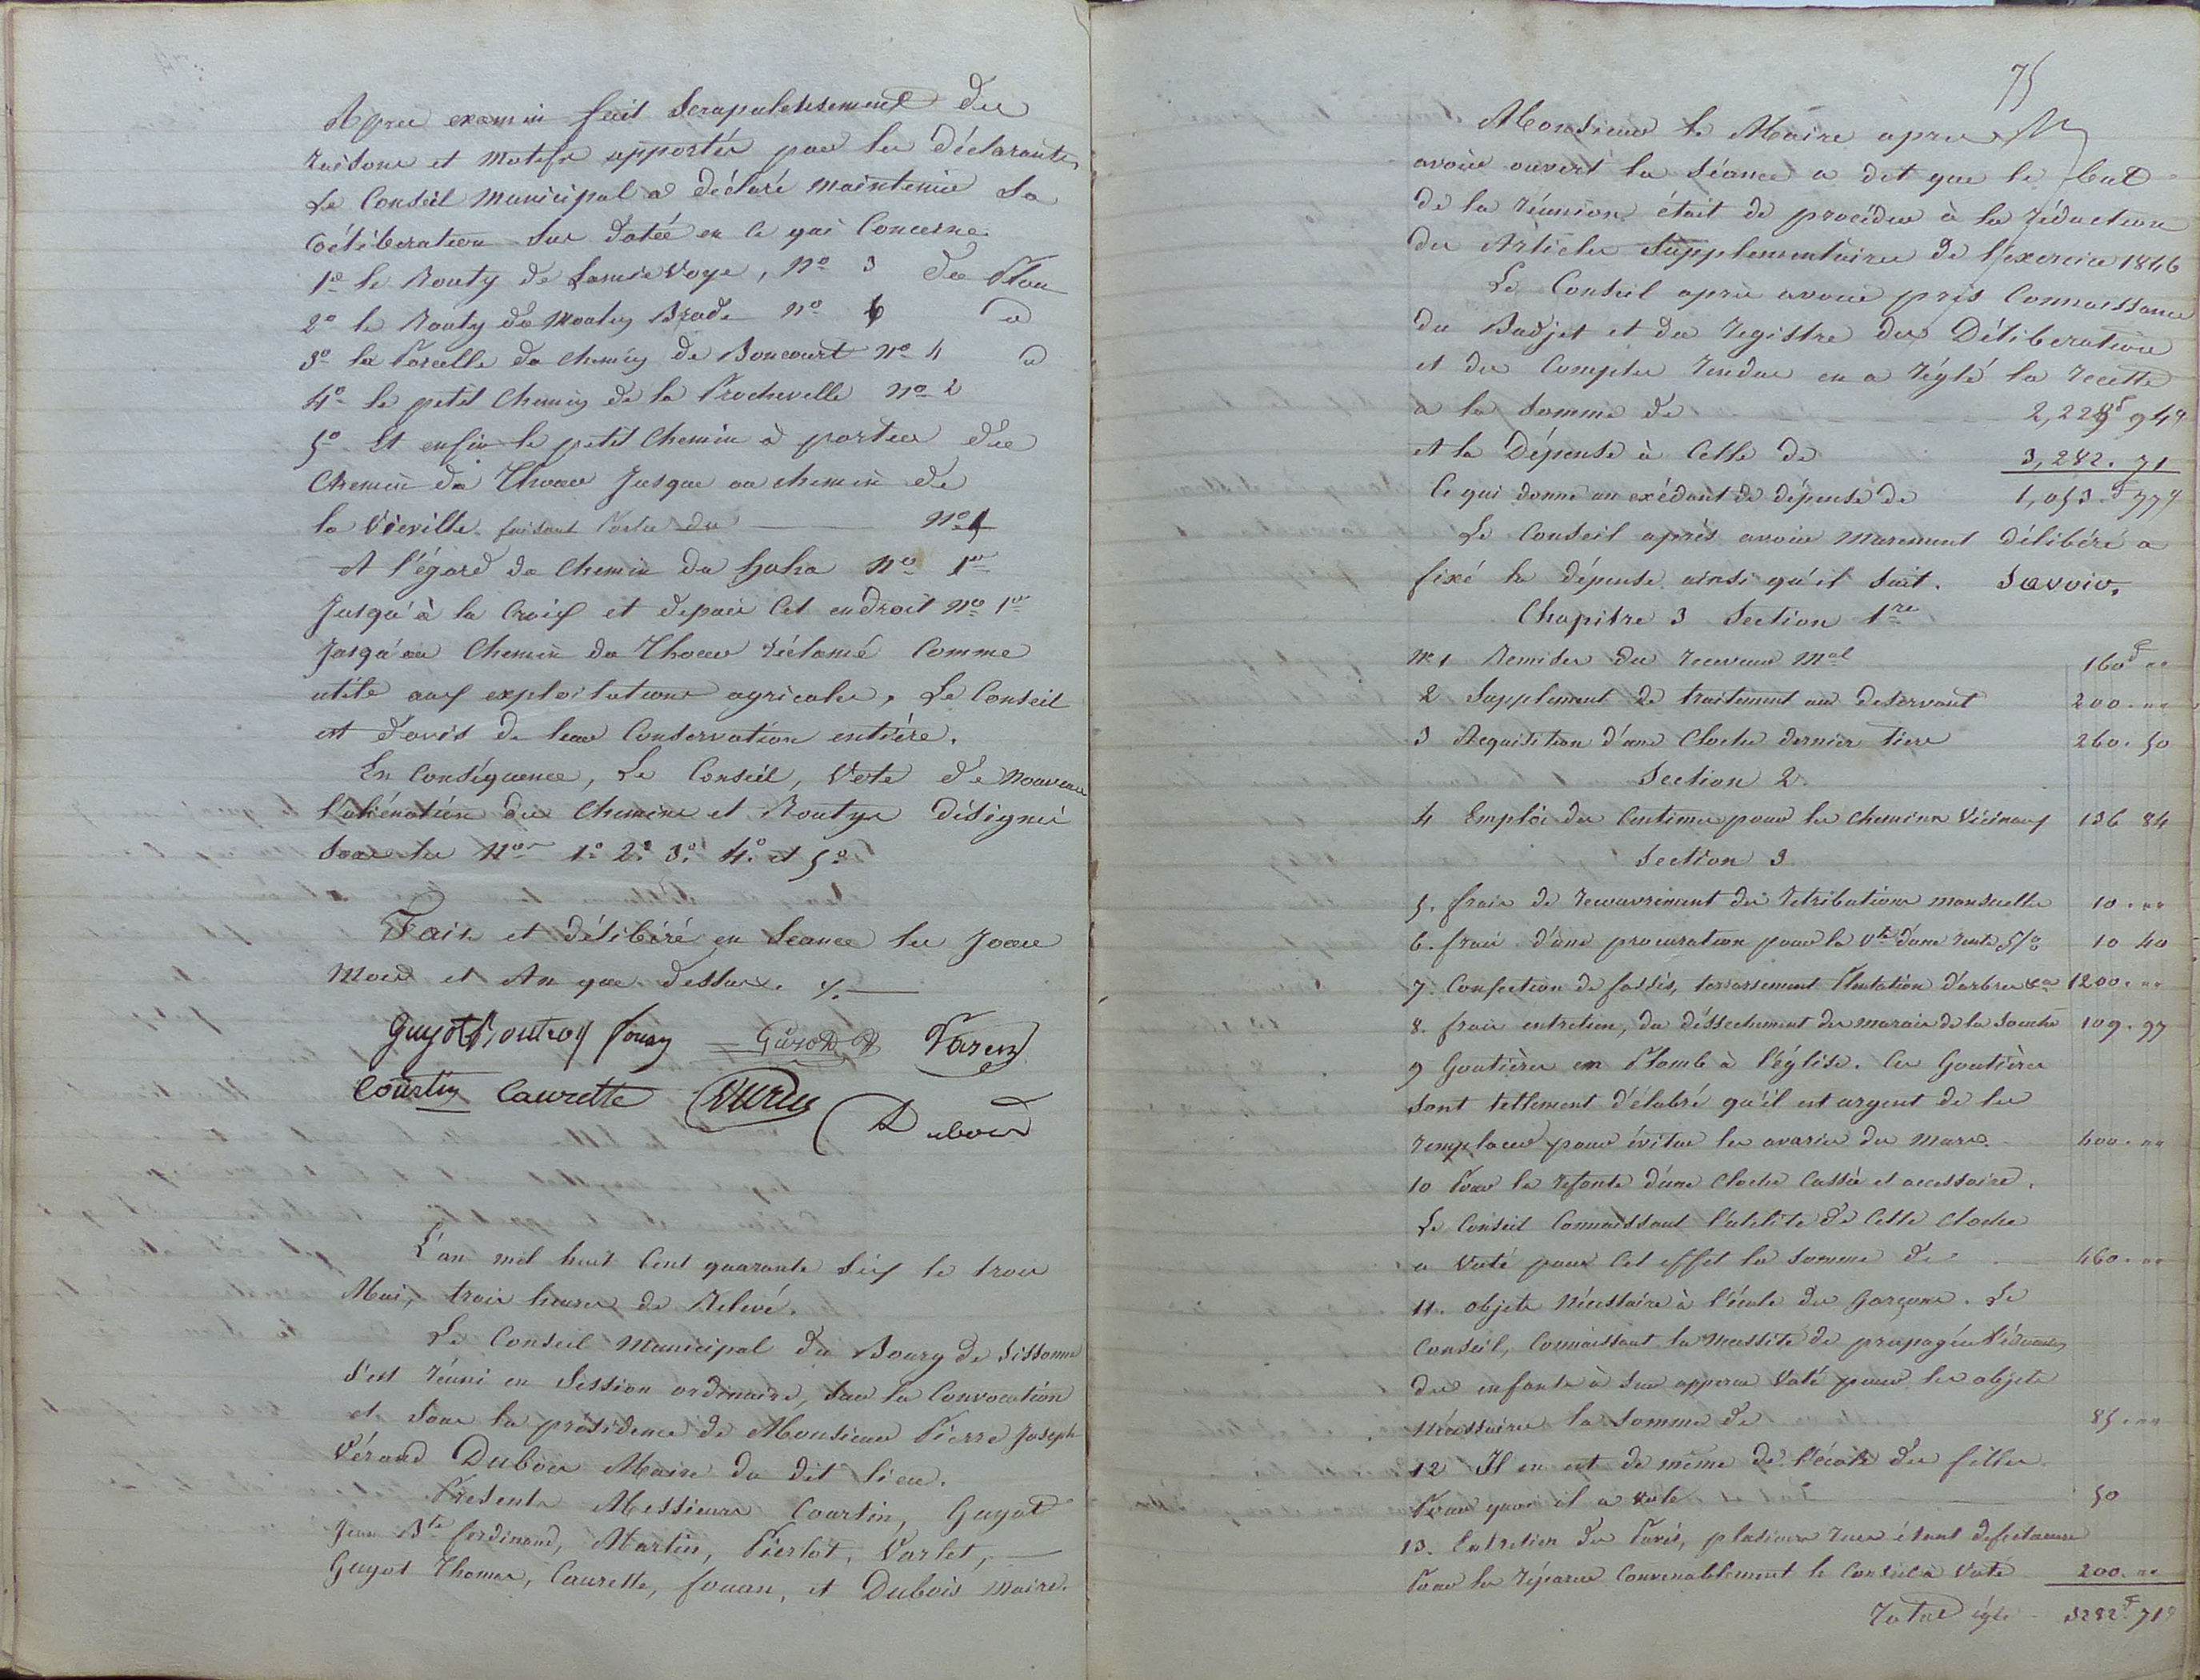 Apres examin fait Scrupuleusement des
raisons et motifs apportés par les déclarants
Le Conseil Municipal a déclaré maintenir Sa
délibération Sus datée en ce qui Concerne.
1º le Routy de Voye, Nº 3 du Plan
2º le Routy de Brade Nº 6 d
3º la Parcelle du chemin de Boncourt Nº 4 d
4º le petit Chemin de la Procheville Nº 2
5º Et enfin le petit Chemin à partir du
Chemin de Thoau Jusque au chemin de
la Vieville faisant Partie du Nº 1
A l'égard du Chemin du haha Nº 1er
Jusqu'à la Croix et depuis Cet endroit Nº 1er
Jusqu'au Chemin de Thoau réclamé Comme
utile aux exploitations agricoles, Le Conseil
est d'avis de leur Conservation entière.
En Conséquence, Le Conseil, Vote de Nouveau
l'aliénation des Chemins et Routys désignés
Sous les Nos 1º 2º 3º 4º et 5º
Fait et délibéré en Séance les Jour
Mois et An que dessus. %.
Guyot Boutroy fouan Varlet
Courtin Caurette Dubois
L'an mil huit Cent quarante Six le trois
Mai, trois heures de Relevé.
Le Conseil Municipal du Bourg de Sissonne
S'est réuni en Session ordinaire, Sur la Convocation
et Sous la présidence de Monsieur Pierre Joseph
Vérand Dubois Maire du dit lieu.
Présents Messieurs Courtin, Guyot
Jean Bte ferdinand, Martin, Pierlot, Varlet,
Guyot Thomas, Caurette, fouan, et Dubois Maire.
75
Monsieur le Maire apres
avoir ouvert la Séance a dit que le but
de la réunion était de procéder à la rédaction
des Articles Supplémentaires de l'exercice 1846
Le Conseil après avoir pris Connaissance
du Budjet et du registre des Délibérations
et des Comptes rendus en a réglé la recette
a la Somme de 2,228f 949
et la Dépense à Celle de 3,282. 71
Ce qui donne un exédant de dépense de 1,053.f 779
Le Conseil après avoir murement délibéré a
fixé la dépense ainsi qu'il Suit. Savoir.
Chapitre 3 Section 1re
Nº 1 Remises du receveur Mal 160f ""
2 Supplement de traitement au desservant 200. ""
3 Acquisition d'une Cloche dernier tiers 260. 50
Section 2.
4 Emploi des Centimes pour les chemins Vicinaux 136 84
Section 3
5. frais de recouvrement des retributions mensuelles 10. ""
6. frais d'une procuration pour la Vte d'une rente 5/% 10 40
7. Confection de fossés, terrassement Plantation d'arbres &a 1200. ""
8. frais entretien, du déssechement des marais de la Souche 109. 97
9 Goutières en Plomb à l'église. Ces Goutières
sont tellement d'élabré qu'il est urgent de les
remplacer pour éviter les avaries des murs. 400. ""
10 Pour la refonte d'une Cloche Cassée et accessoire.
Le Conseil Connaissant l'utilité de Cette Cloche
a Voté pour Cet effet la Somme de 460. ""
11. objets Nécessaire à l'école des Garçons. Le
Conseil, Connaissant la nécessité de propager l'éducation
des enfants à Voté pour les objets
nécessaires la Somme de 85. ""
12 Il en est de même de l'école des filles
Pour quoi il a voté 50
13. Entretien des Pavés, plusieurs rues étant defectueuses
Pour les réparer Convenablement le Conseil a Voté 200. ""
Total égal 3282f 719